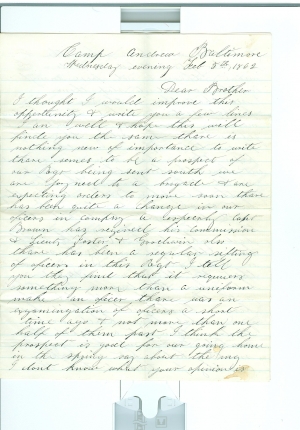 Camp Andrew Baltimore
Wednesday evening Feb 5th 1862
Dear Brother
I thought I would improve this
opportunity & write you a few lines
I am well & hope this will
find you the same there is
nothing new of importance to write
there semes to be a prospect of
our Regt being sent south we
are joyned to a brigade & are
expecting orders to move soon there
has been quite a change in our
oficers in company A
Brown has resigned his commission
& Lieut Foster & Goodwin also
there has been a regular sifting
of oficers in this Regt I tell
you they find that it requiers
something more than a uniform
make an oficer there was an
examination of oficers a short
time ago & not more than one
half of them past I think the
prospect is good for our going home
in the spring say about the
I dont know what your opinion is